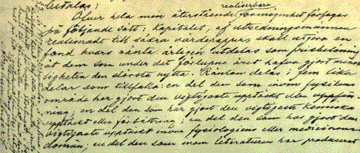 bestämdt;
realiserbara
Öfver hela min återstående förmögenhet förfogas
på följande sätt: kapitalet, af utredningsmännen
realiserad till säkra värdepapper, skall utgöra en
fond, hvars ränta årligen utdelas som prisbelöning
åt dem som under det förlupne året hafva gjort mensk-
ligheten den största nytta. Räntan delas i fem lika
delar som tillfalla: en del den som inom fysikens
område har gjort den vigtigaste upptäckt eller uppfin-
ning; en del den som har gjort den vigtigaste kemiska
upptäckt eller förbättring; en del den som har gjort den
vigtigaste upptäckt inom fysiologiens eller medicinens
domän; en del den som inom literaturen har producerat